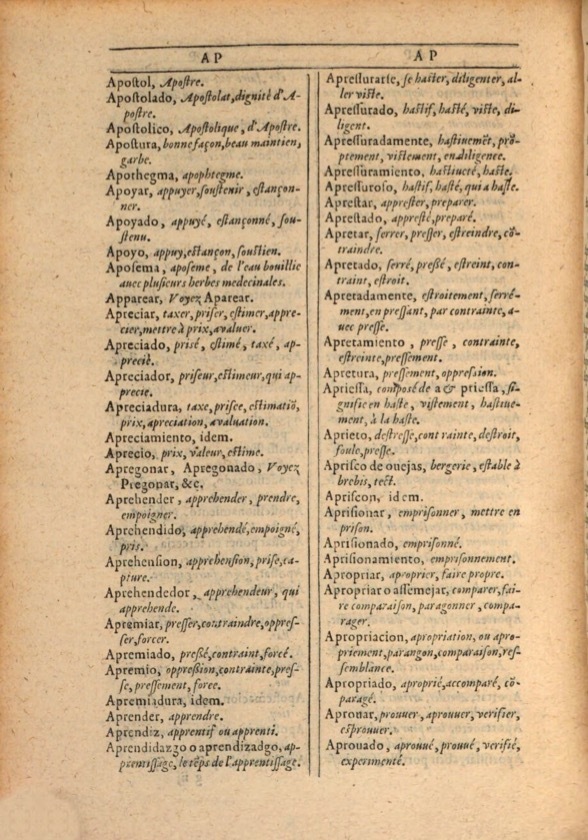 AP
Apostol, Apostre.
Apostolado, Apostolat, dignité d'A-
postre.
Apostolico, Apostolique, d'Apostre.
Apostura, bonne façon, beau maintien,
garbe.
Apothegma, apophtegme.
Apoyar, appuyer, soustenir, estançon-
ner.
Apoyado, appuyé, estançonné, sou-
stenu.
Apoyo, appuy, estançon, soustien.
Aposema, aposeme, de l'eau bouillie
auec plusieurs herbes medecinales.
Apparear, Voyez Aparear.
Apreciar, taxer, priser, estimer, appre-
cier, mettre à prix, avaluer.
Apreciado, prisé, estimé, taxé, ap-
precié.
Apreciador, priseur, estimeur, qui ap-
precie.
Apreciadura, taxe, prisee, estimatiō,
prix, apreciation, avaluation.
Apreciamiento, idem.
Aprecio, prix, valeur, estime.
Apregonar, Apregonado, Voyez
Pregonar, &c.
Aprehender, apprehender, prendre,
empoigner.
Aprehendido, apprehendé, empoigné,
pris.
Aprehension, apprehension, prise, ca-
pture.
Aprehendedor, apprehendeur, qui
apprehende.
Apremiar, presser, contraindre, oppres-
ser, forcer.
Apremiado, pressé, contraint, forcé.
Apremio, oppression, contrainte, pres-
se, pressement, force.
Apremiadura, idem.
Aprender, apprendre.
Aprendiz, apprentif ou apprenti.
Aprendidazgo o aprendizadgo, ap-
prentissage, le tẽps de l'apprentissage.
AP
Apressurarse, se haster, diligenter, al-
ler viste.
Apressurado, hastif, hasté, viste, di-
ligent.
Apressuradamente, hastiuemẽt, prō-
ptement, vistement, en diligence.
Apressuramiento, hastiueté, haste.
Apressuroso, hastif, hasté, qui a haste.
Aprestar, apprester, preparer.
Aprestado, appresté, preparé.
Apretar, serrer, presser, estreindre, cō-
traindre.
Apretado, serré, pressé, estreint, con-
traint, estroit.
Apretadamente, estroitement, serré-
ment, en pressant, par contrainte, a-
uec presse.
Apretamiento, presse, contrainte,
estreinte, pressement.
Apretura, pressement, oppression.
Apriessa, composé de a & priessa, si-
gnifie en haste, vistement, hastiue-
ment, à la haste.
Aprieto, destresse, contrainte, destroit,
foule, presse.
Aprisco de ouejas, bergerie, estable à
brebis, tect.
Apriscon, idem.
Aprisionar, emprisonner, mettre en
prison.
Aprisionado, emprisonné.
Aprisionamiento, emprisonnement.
Apropriar, aproprier, faire propre.
Apropriar o assemejar, comparer, fai-
re comparaison, paragonner, compa-
rager.
Apropriacion, apropriation, ou apro-
priement, parangon, comparaison, res-
semblance.
Apropriado, aproprié, accomparé, cō-
paragé.
Aprouar, prouuer, aprouuer, verifier,
esprouuer.
Aprouado, aprouué, prouué, verifié,
experimenté.